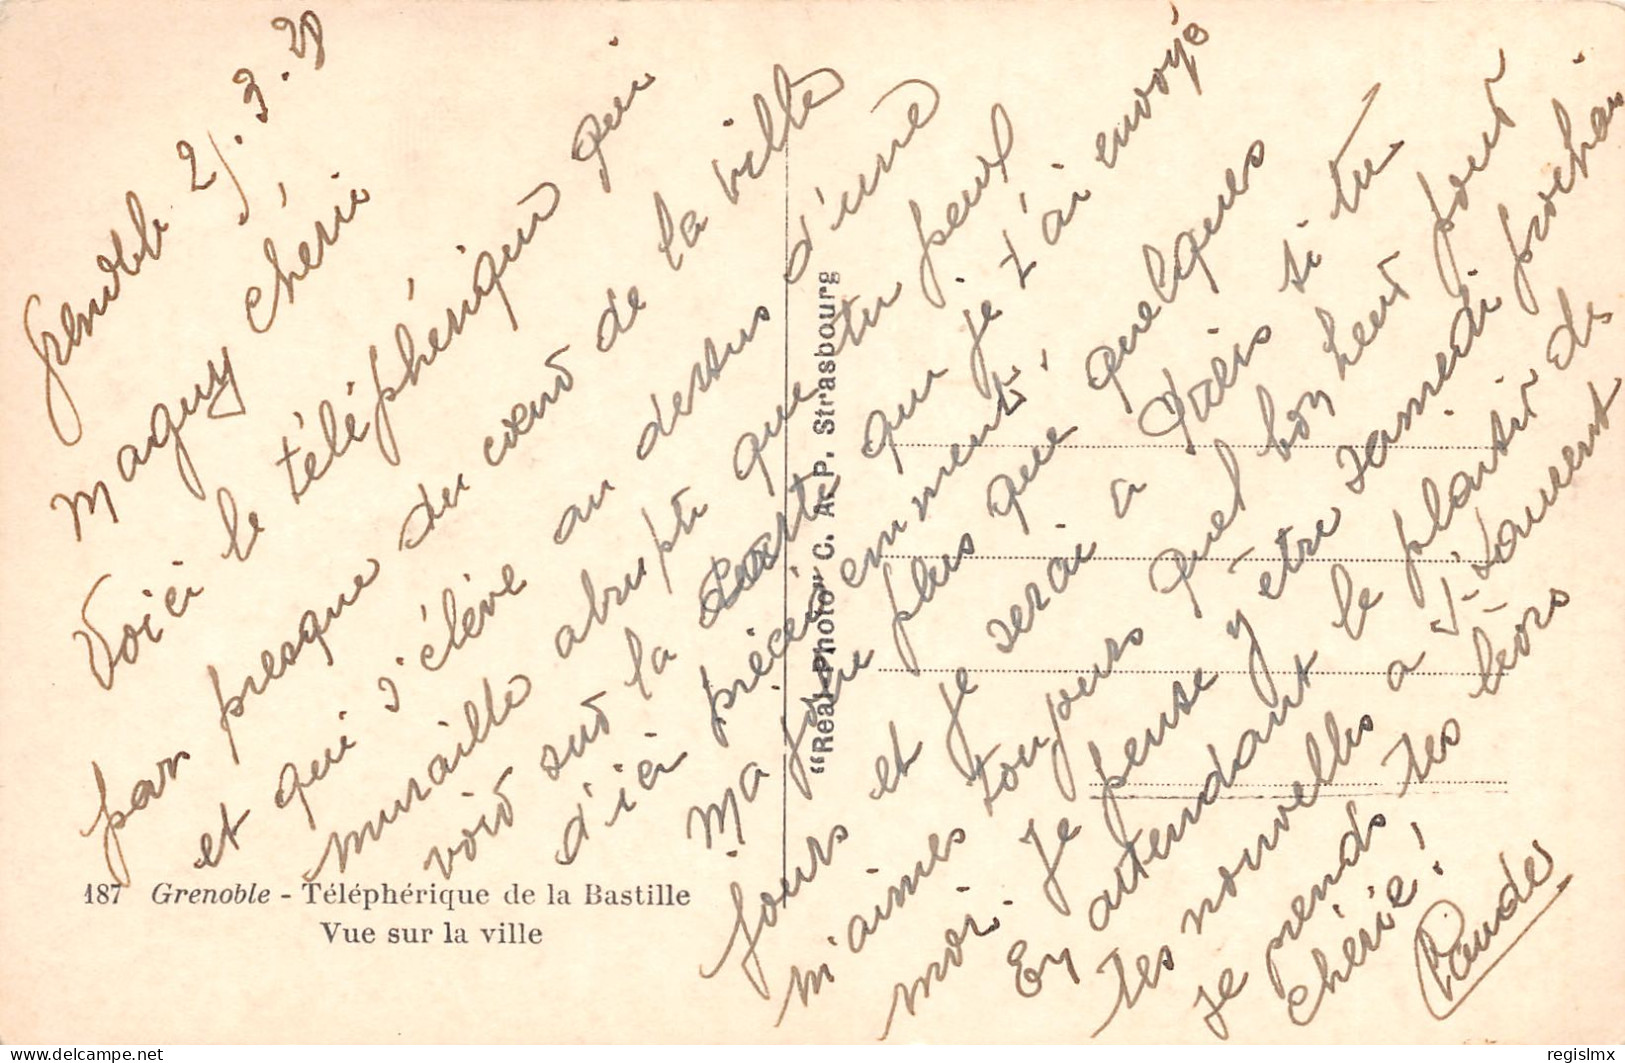 Grenoble 2
Maguy chérie
Voici le téléphérique qui
part presque du cœur de la ville
et qui s'élève au dessus d'une
muraille abrupte que tu peux
voir sur la carte que je t'ai envoyé
d'ici précédemment.
Ma plus que quelques
jours et je serai à si tu
m'aimes toujours quel bonheur pour
moi. Je pense y être samedi prochain
En attendant le plaisir de
tes nouvelles
je prends tes lèvres
chérie!
Claude
187 Grenoble - Téléphérique de la Bastille
Vue sur la ville
"Real-Photo" C. A. P. Strasbourg
delcampe.net
regislmx